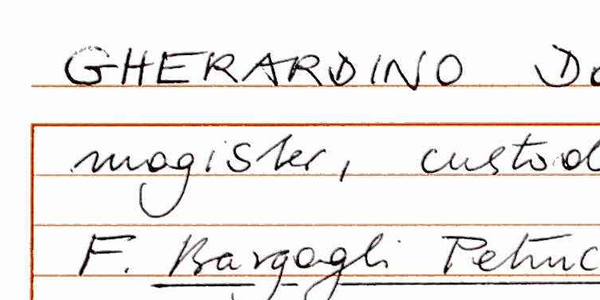 GHERARDINO Do
magister, custod
F. Bargagli Petruc